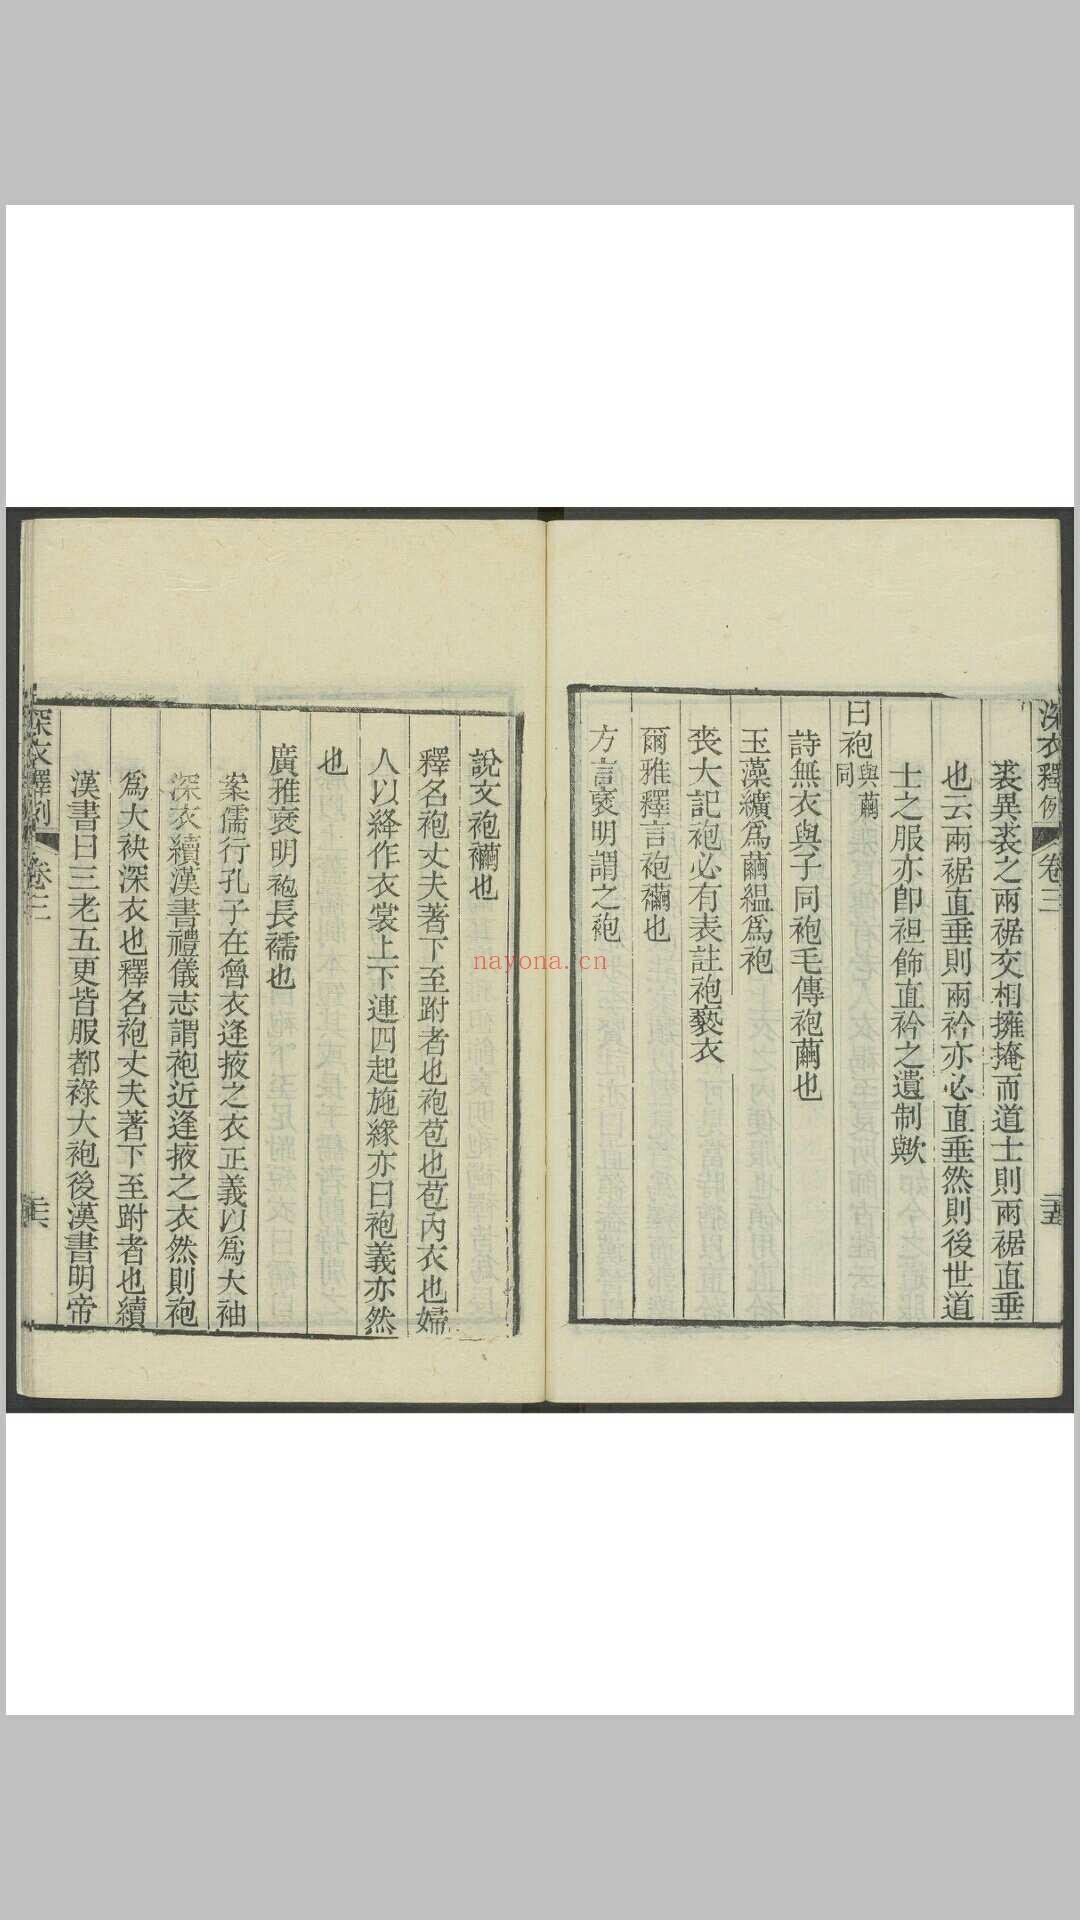 深衣釋例
卷三
裘異裘之兩裾交相擁掩而道士則兩裾直垂
也云兩裾直垂則兩衿亦必直垂然則後世道
士之服亦卽袒飾直衿之遺制歟
曰袍與繭同
詩無衣與子同袍毛傳袍繭也
玉藻纊爲繭縕爲袍
喪大記袍必有表註袍褻衣
爾雅釋言袍襺也
方言褒明謂之袍
說文袍襺也
釋名袍丈夫著下至跗者也袍苞也苞內衣也婦
人以絳作衣裳上下連四起施緣亦曰袍義亦然
也
廣雅褒明袍長襦也
案儒行孔子在魯衣逢掖之衣正義以爲大袖
深衣續漢書禮儀志謂袍近逢掖之衣然則袍
爲大袂深衣也釋名袍丈夫著下至跗者也續
漢書曰三老五更皆服都祿大袍後漢書明帝
深衣釋例
卷三
nayona.cn